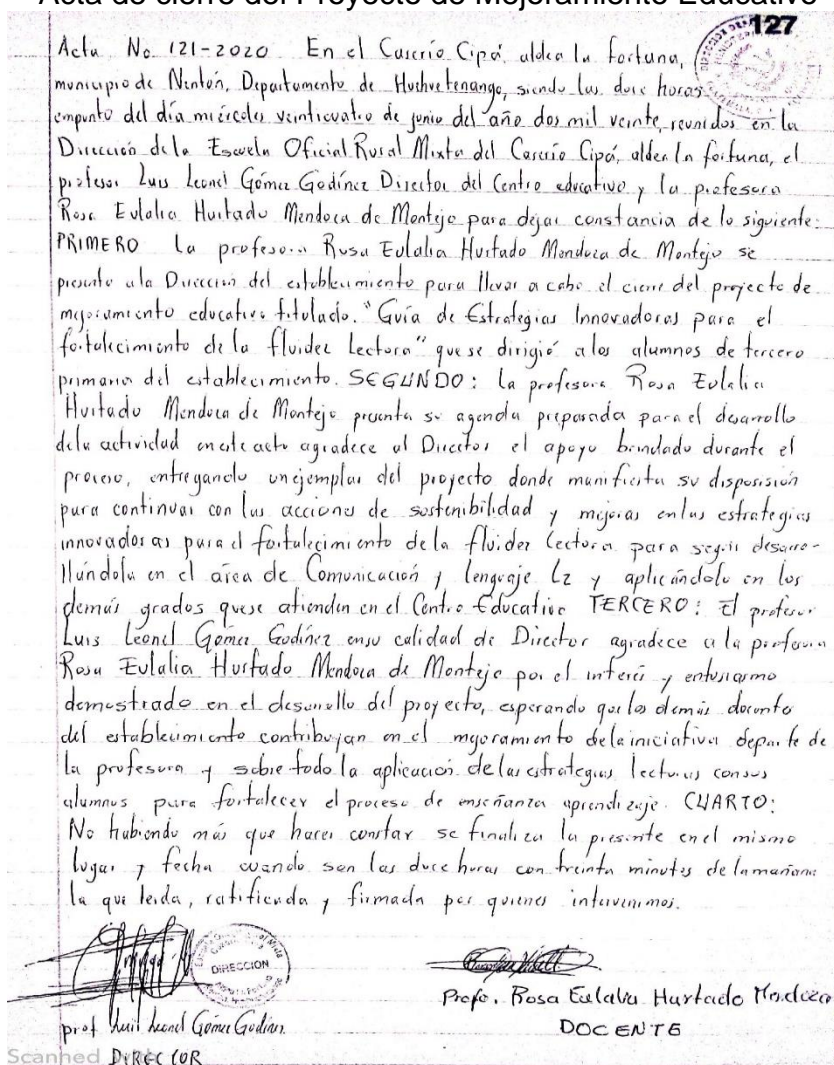 Acta de cierre del Proyecto de Mejoramiento Educativo
127
Acta No 121-2020 En el Caserío Cipá, aldea la fortuna,
municipio de Nentón, Departamento de Huehuetenango, siendo las doce horas
empunto del día miércoles veinticuatro de junio del año dos mil veinte, reunidos en la
Dirección de la Escuela Oficial Rural Mixta del Caserío Cipá, aldea la fortuna, el
profesor Luis Leonel Gómez Godínez Director del Centro educativo y la profesora
Rosa Eulalia Hurtado Mendoza de Montejo para dejar constancia de lo siguiente:
PRIMERO La profesora Rosa Eulalia Hurtado Mendoza de Montejo se
presento a la Dirección del establecimiento para llevar a cabo el cierre del proyecto de
mejoramiento educativo titulado. "Guía de Estrategias Innovadoras para el
fortalecimiento de la fluidez Lectora" que se dirigió a los alumnos de tercero
primaria del establecimiento. SEGUNDO: La profesora Rosa Eulalia
Hurtado Mendoza de Montejo presenta su agenda preparada para el desarrollo
dela actividad en este acto agradece al Director el apoyo brindado durante el
proceso, entregando un ejemplar del proyecto donde manifiesta su disposisión
para continuar con las acciones de sostenibilidad y mejoras en las estrategias
innovadoras para el fortalecimiento de la fluidez Lectora para seguir desarro-
llándola en el área de Comunicación y Lenguaje L2 y aplicándolo en los
demás grados que se atienden en el Centro Educativo TERCERO: El profesor
Luis Leonel Gómez Godínez en su calidad de Director agradece a la profesora
Rosa Eulalia Hurtado Mendoza de Montejo por el interés y entusiasmo
demostrado en el desarrollo del proyecto, esperando que los demás docentes
del establecimiento contribuyan en el mejoramiento de la iniciativa departe de
la profesora y sobre todo la aplicación de las estrategias lectoras con sus
alumnos para fortalecer el proceso de enseñanza aprendizaje. CUARTO:
No habiendo más que hacer constar se finaliza la presente en el mismo
lugar y fecha cuando son las doce horas con treinta minutos de la mañana
la que leida, ratificada y firmada por quienes intervenimos.
DIRECCION
prof. Luis Leonel Gómez Godínez.
DIRECTOR
Profa. Rosa Eulalia Hurtado Mendoza
DOCENTE
Scanned with